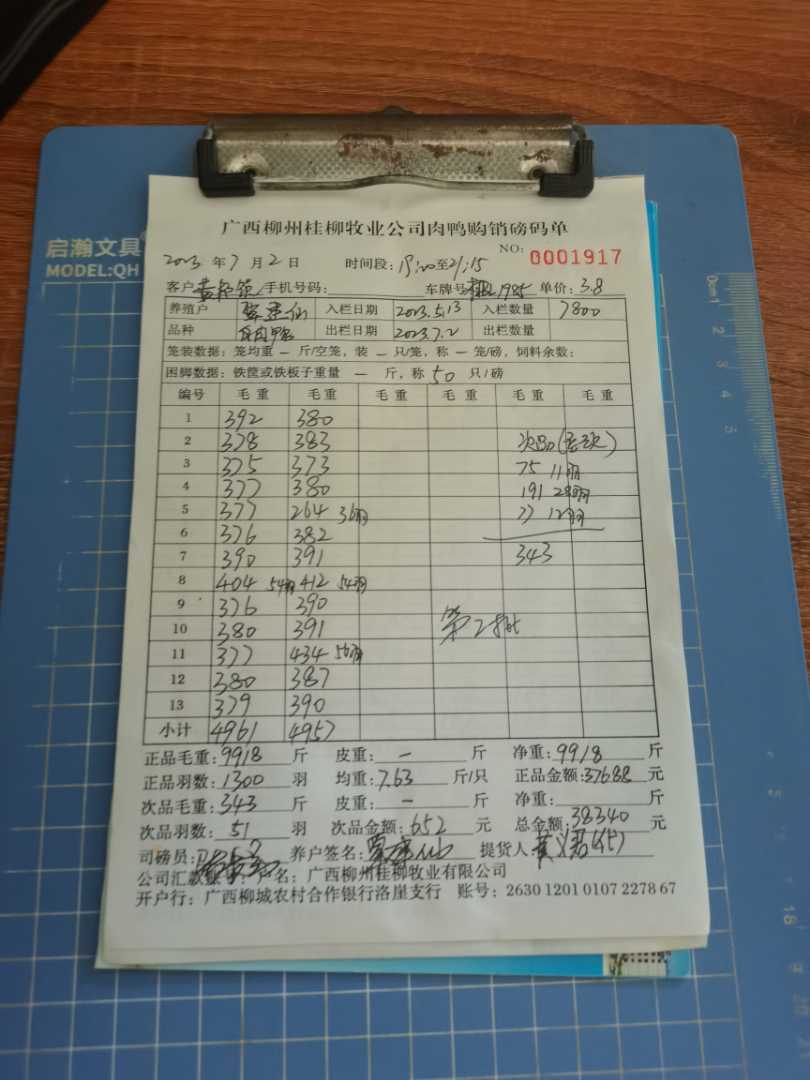 启瀚文具
MODEL:QH
广西柳州桂柳牧业公司肉鸭购销磅码单
NO: 0001917
2023 年 7 月 2 日 时间段: 19:20至21:15
客户 手机号码: 车牌号 1985 单价: 3.8
养殖户 入栏日期 2023.5.13 入栏数量 7800
品种 出栏日期 2023.7.2 出栏数量
笼装数据: 笼均重 — 斤/空笼, 装 — 只/笼, 称 — 笼/磅, 饲料余数:
困脚数据: 铁筐或铁板子重量 — 斤, 称 50 只/磅
编号 毛重 毛重 毛重 毛重 毛重 毛重
1 392 380
2 378 383
3 375 373 75 11羽
4 377 380 191 28羽
5 377 264 36羽 77 12羽
6 376 382
7 390 391 343
8 404 54羽 412 54羽
9 376 390
10 380 391 第2批
11 377 434 56羽
12 380 387
13 379 390
小计 4961 4957
正品毛重: 9918 斤 皮重: — 斤 净重: 9918 斤
正品羽数: 1300 羽 均重: 7.63 斤/只 正品金额: 37688 元
次品毛重: 343 斤 皮重: — 斤 净重: 斤
次品羽数: 51 羽 次品金额: 652 元 总金额: 38340 元
司磅员: 养户签名: 提货人
公司汇款 名: 广西柳州桂柳牧业有限公司
开户行: 广西柳城农村合作银行洛崖支行 账号: 2630 1201 0107 2278 67